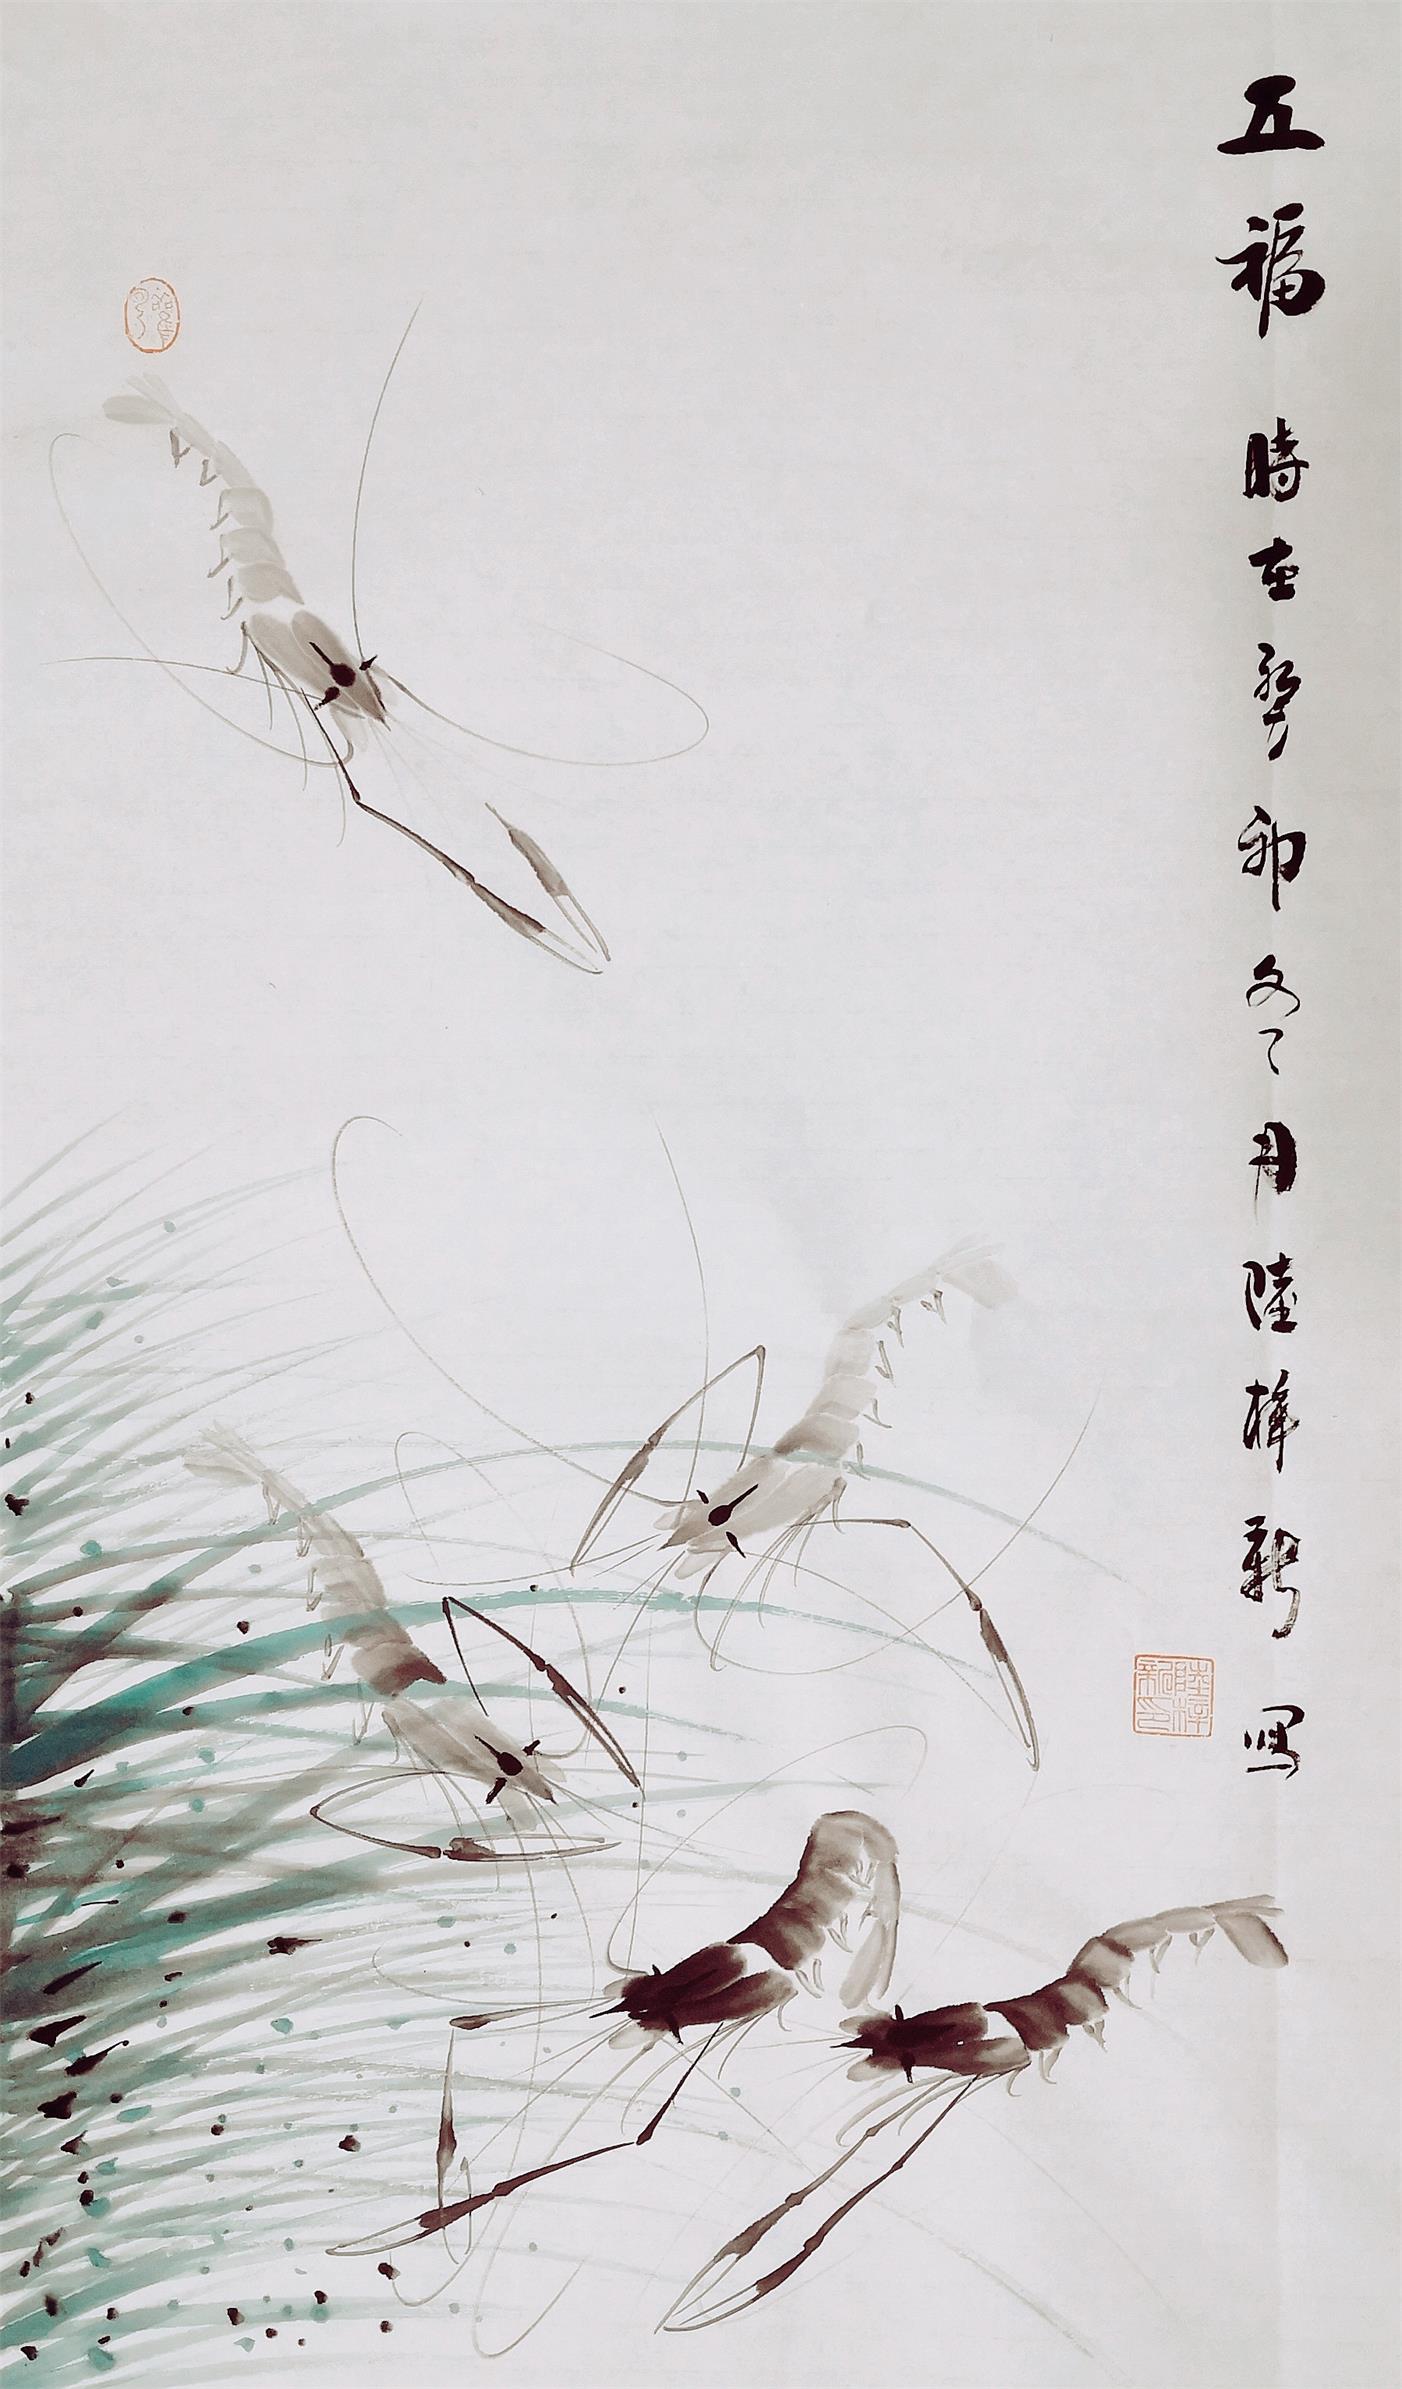 五福 時在癸卯冬月陸梓新寫
陸梓新印